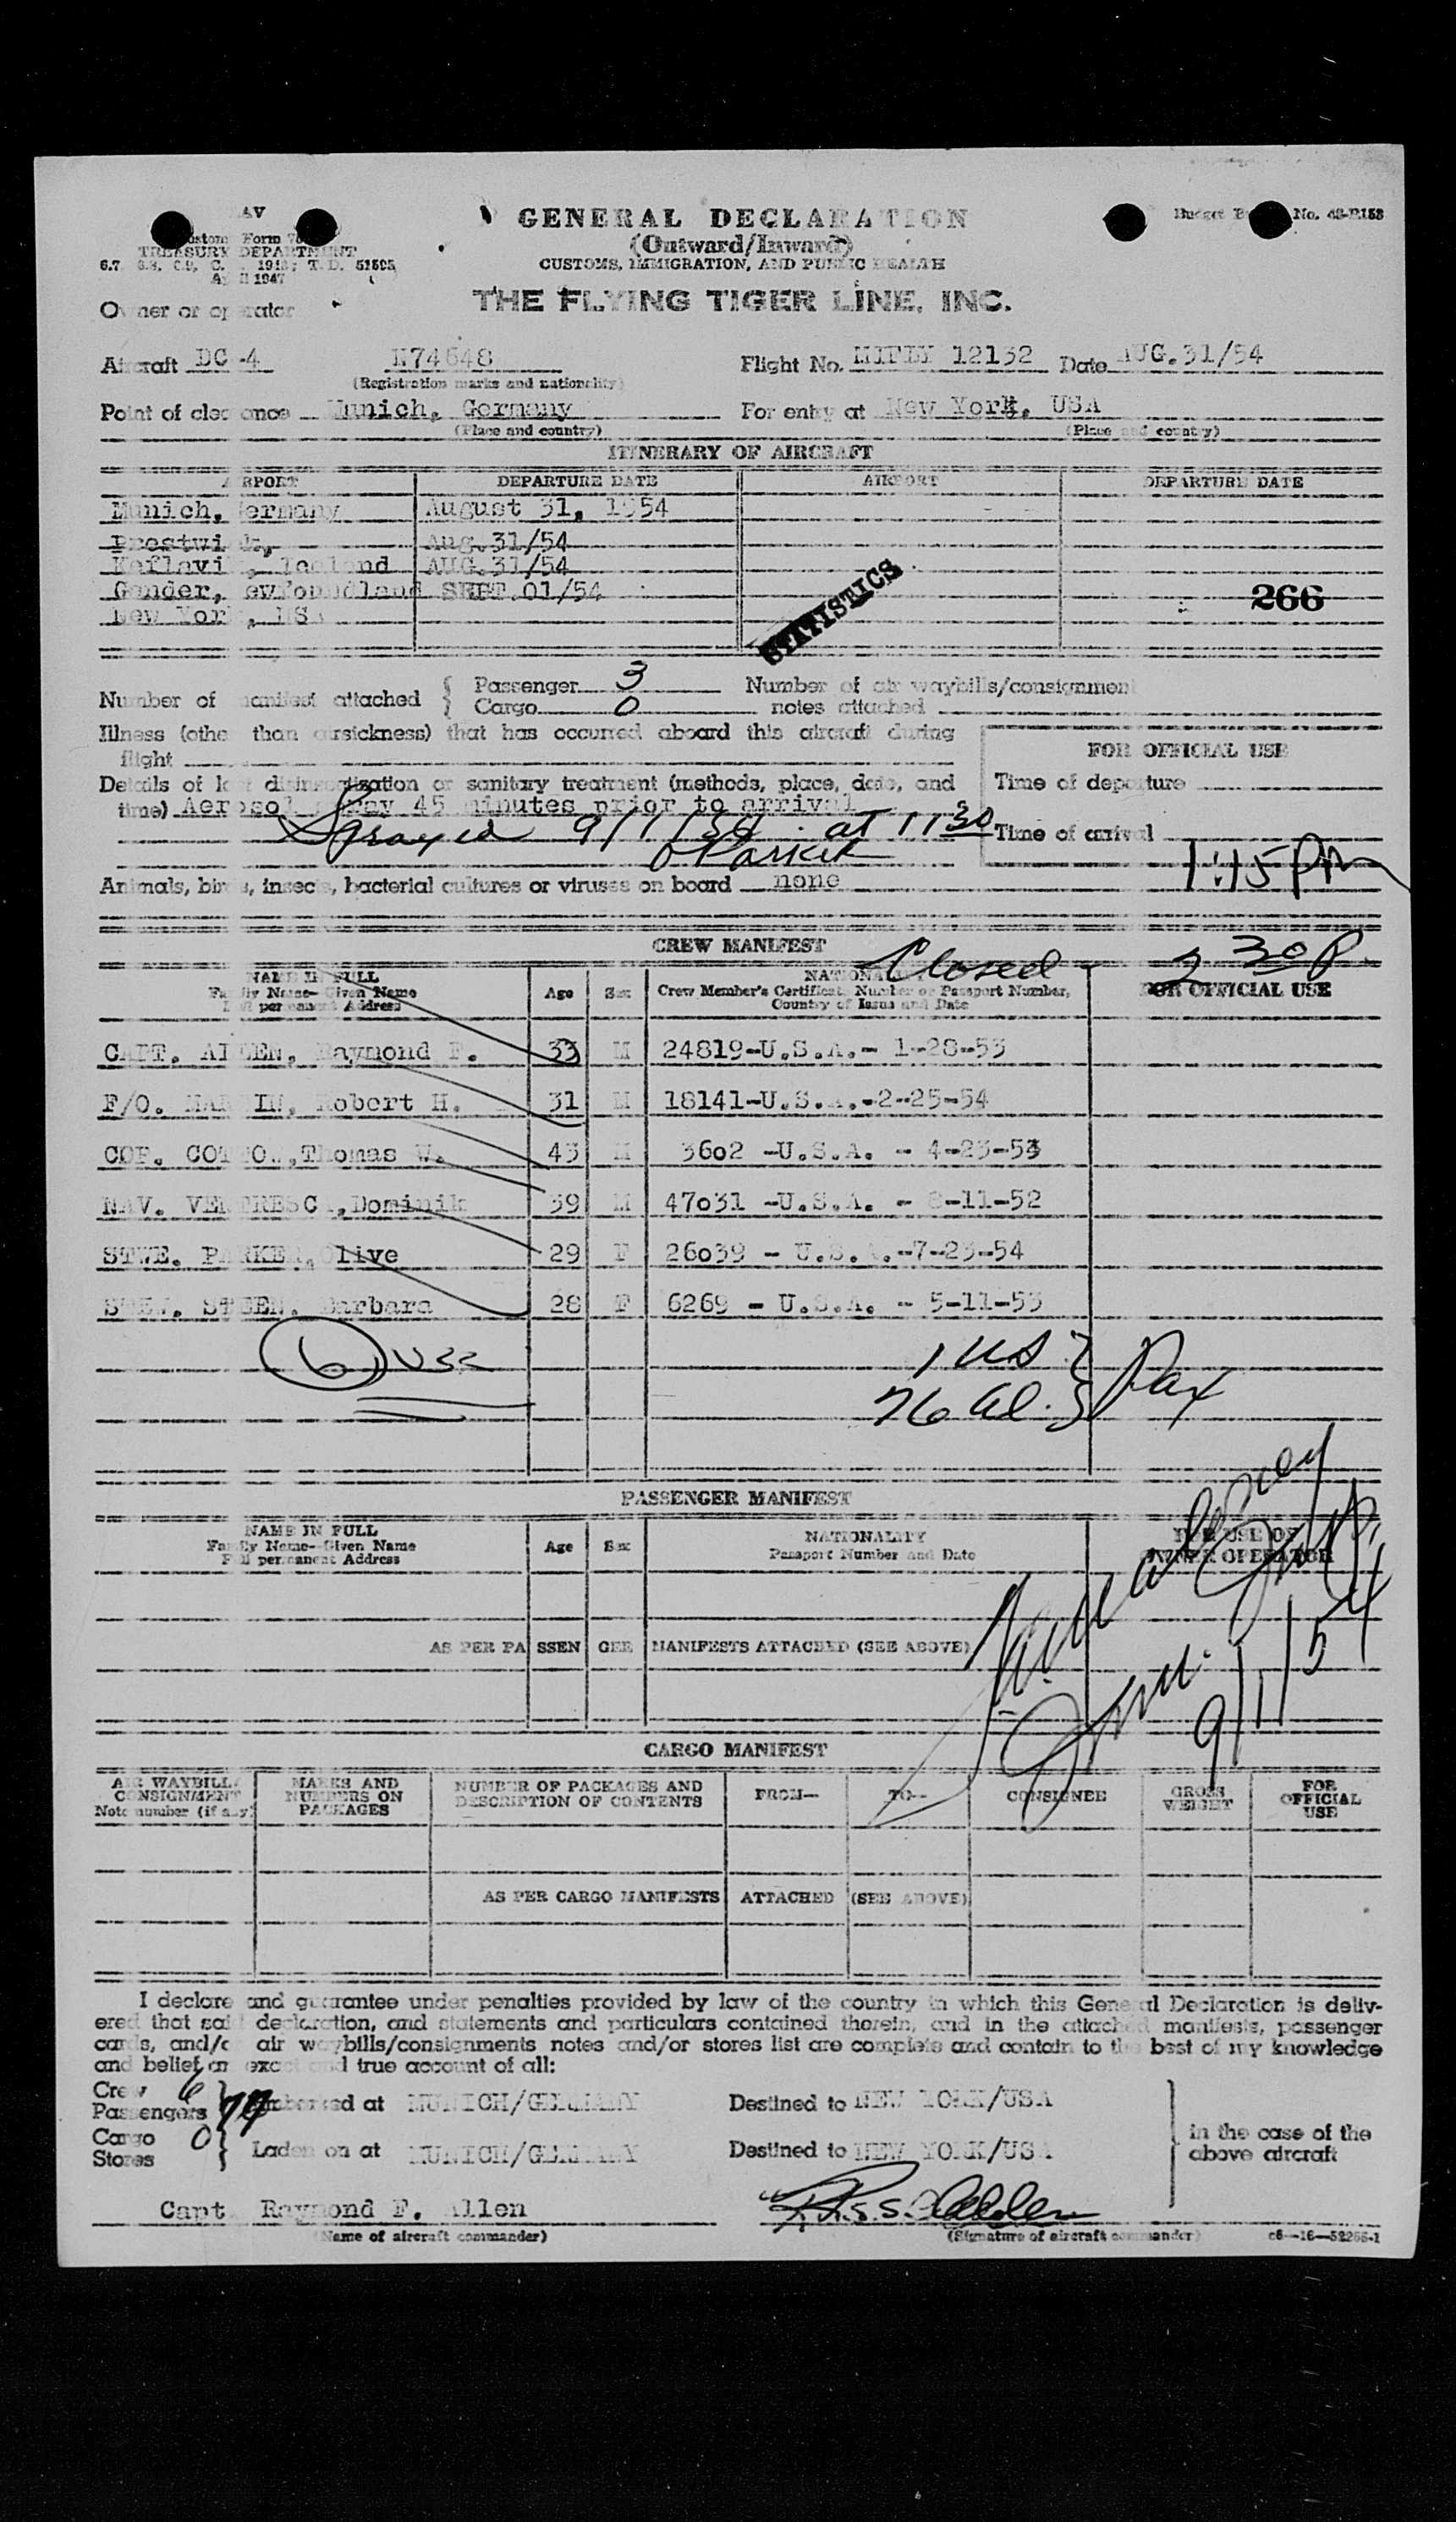 GENERAL DECLARATION
(Outward/Inward)
CUSTOMS, IMMIGRATION, AND PUBLIC HEALTH
TREASURY DEPARTMENT
THE FLYING TIGER LINE, INC.
Owner or operator
Aircraft DC-4 N74648 Flight No. 12132 Date AUG.31/54
(Registration marks and nationality)
Point of clearance Munich, Germany For entry at New York, USA
(Place and country) (Place and country)
ITINERARY OF AIRCRAFT
AIRPORT DEPARTURE DATE AIRPORT DEPARTURE DATE
Munich, Germany August 31, 1954
Prestwick, Aug.31/54
Keflavik, Iceland AUG.31/54
Gander, Newfoundland SEPT.01/54
New York, USA
STATISTICS
266
Number of manifest attached { Passenger 3 Number of air waybills/consignment
Cargo 0 notes attached
Illness (other than airsickness) that has occurred aboard this aircraft during
flight
FOR OFFICIAL USE
Details of last disinsectization or sanitary treatment (methods, place, date, and
Time of departure
time) Aerosol Spray 45 minutes prior to arrival
Sprayed 9/1/54 at 11 30
Time of arrival
O Parker
1:15 PM
Animals, birds, insects, bacterial cultures or viruses on board none
CREW MANIFEST
Closed 2 30 P.
NAME IN FULL
Family Name-Given Name
Full permanent Address
Age Sex
Crew Member's Certificate Number or Passport Number,
Country of Issue and Date
FOR OFFICIAL USE
CAPT. ALLEN, Raymond F. 33 M 24819-U.S.A.- 1-28-53
F/O. MARTIN, Robert H. 31 M 18141-U.S.A.-2-25-54
COP. Thomas W. 43 M 3602 -U.S.A. - 4-23-53
NAV. Dominik 39 M 47031 -U.S.A. - 8-11-52
STWE. PARKER, Olive 29 F 26039 - U.S.A.-7-23-54
STEEN, Barbara 28 F 6269 - U.S.A. - 5-11-53
6 USC
1 US } Pax
76 Al.
PASSENGER MANIFEST
NAME IN FULL
Family Name-Given Name
Full permanent Address
Age Sex
NATIONALITY
Passport Number and Date
FOR USE OF
OWNER OPERATOR
AS PER PASSENGER MANIFESTS ATTACHED (SEE ABOVE)
9/1/54
CARGO MANIFEST
AIR WAYBILL/
CONSIGNMENT
Note number (if any)
MARKS AND
NUMBERS ON
PACKAGES
NUMBER OF PACKAGES AND
DESCRIPTION OF CONTENTS
FROM—
TO—
CONSIGNEE
GROSS
WEIGHT
FOR
OFFICIAL
USE
AS PER CARGO MANIFESTS ATTACHED (SEE ABOVE)
I declare and guarantee under penalties provided by law of the country in which this General Declaration is deliv-
ered that said declaration, and statements and particulars contained therein, and in the attached manifests, passenger
cards, and/or air waybills/consignments notes and/or stores list are complete and contain to the best of my knowledge
and belief an exact and true account of all:
Crew 6
Passengers 77 } Embarked at MUNICH/GERMANY Destined to NEW YORK/USA
Cargo 0
Stores } Laden on at MUNICH/GERMANY Destined to NEW YORK/USA
in the case of the
above aircraft
Capt Raymond F. Allen
(Name of aircraft commander) (Signature of aircraft commander)